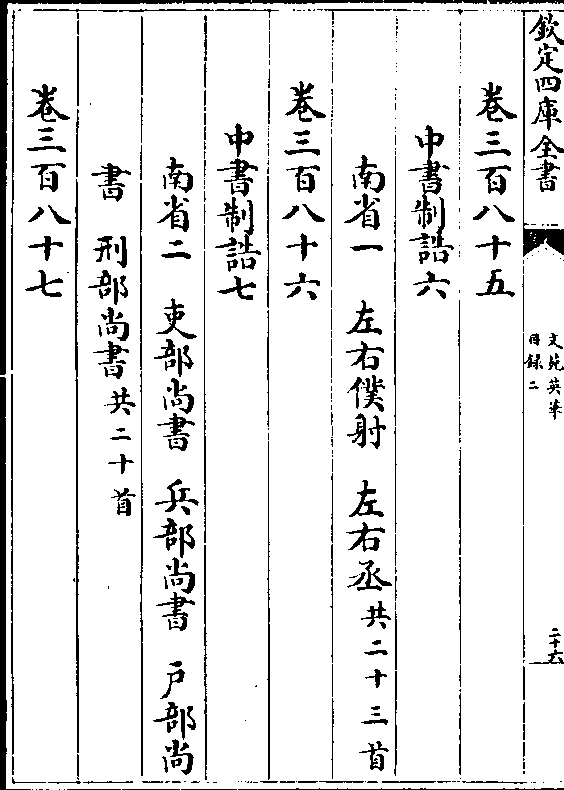 欽定四庫全書
文苑英華
目録二
二十六
卷三百八十五
中書制誥六
南省一　左右僕射　左右丞共二十三首
卷三百八十六
中書制誥七
南省二　吏部尚書　兵部尚書　戸部尚
書　刑部尚書共二十首
卷三百八十七